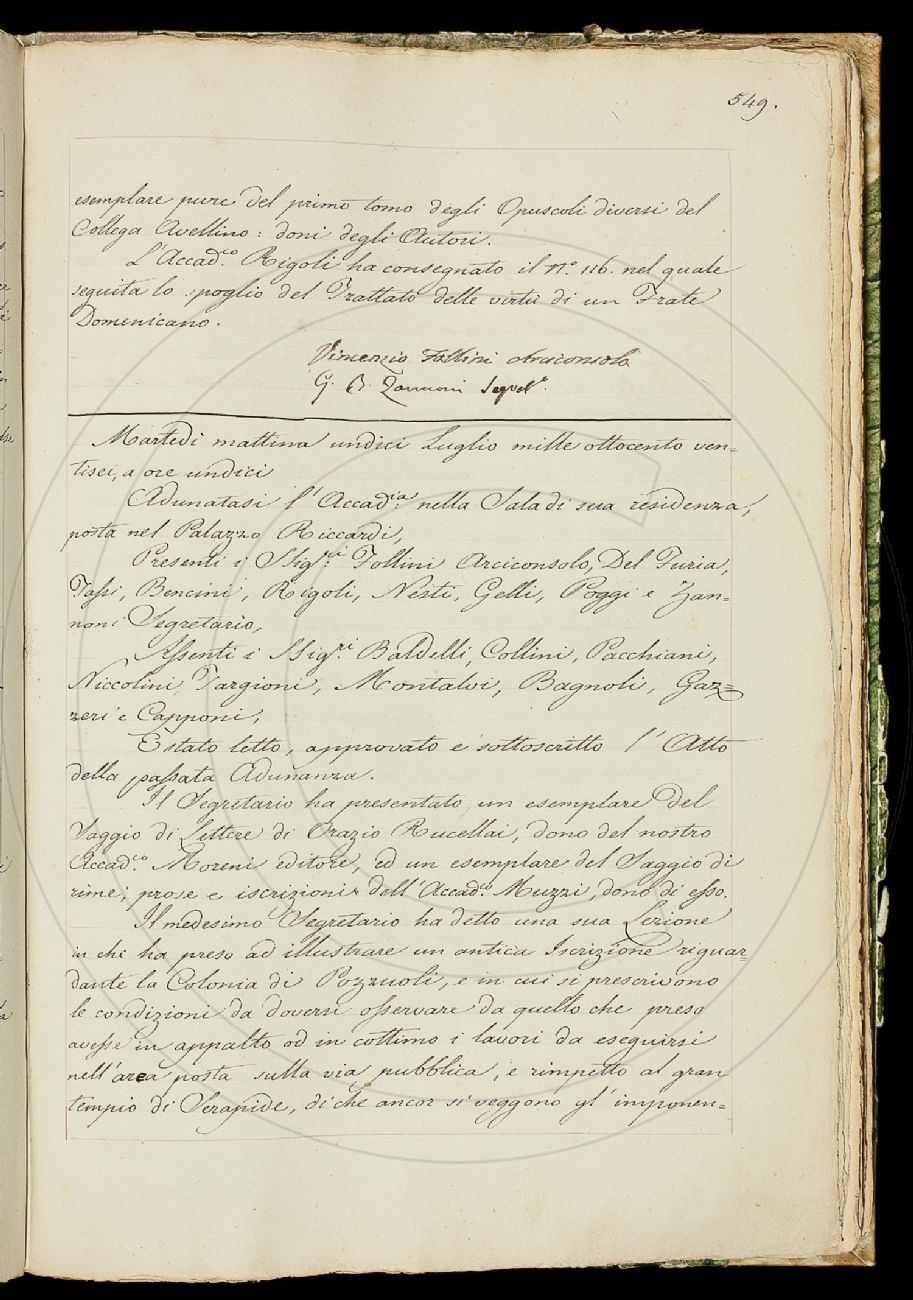 549.
esemplare pure del primo tomo degli Opuscoli diversi del
Collega Avellino: doni degli Autori.
L'Accad.co Rigoli ha consegnato il N.o 116. nel quale
seguita lo spoglio del Trattato delle virtù di un Frate
Domenicano.
Vincenzio Follini Arciconsolo
G. B. Zannoni Segret.o
Martedì mattina undici Luglio mille ottocento ven=
tisei, a ore undici
Adunatasi l'Accad.ia nella Sala di sua residenza,
posta nel Palazzo Riccardi,
Presenti i SSig.ri Follini Arciconsolo, Del Furia,
Tassi, Bencini, Rigoli, Nesti, Gelli, Poggi e Zan=
noni Segretario,
Assenti i SSig.ri Baldelli, Collini, Pacchiani,
Niccolini, Targioni, Montalvi, Bagnoli, Gaz=
zeri e Capponi,
È stato letto, approvato e sottoscritto l'Atto
della passata Adunanza.
Il Segretario ha presentato un esemplare del
Saggio di Lettere di Orazio Rucellai, dono del nostro
Accad.co Moreni editore, ed un esemplare del Saggio di
rime, prose e iscrizioni dell'Accad.o Muzzi, dono di esso.
Il medesimo Segretario ha detto una sua Lezione
in che ha preso ad illustrare un antica Iscrizione riguar=
dante la Colonia di Pozzuoli, e in cui si prescrivono
le condizioni da doversi osservare da quello che preso
avesse in appalto od in cottimo i lavori da eseguirsi
nell'area posta sulla via pubblica, e rimpetto al gran
tempio di Serapide, di che ancor si veggono gl'imponen=